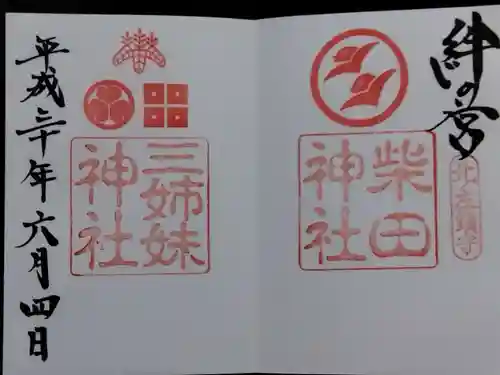 絆の宮
北の庄鎮守
柴田
神社
三姉妹
神社
平成三十年六月四日